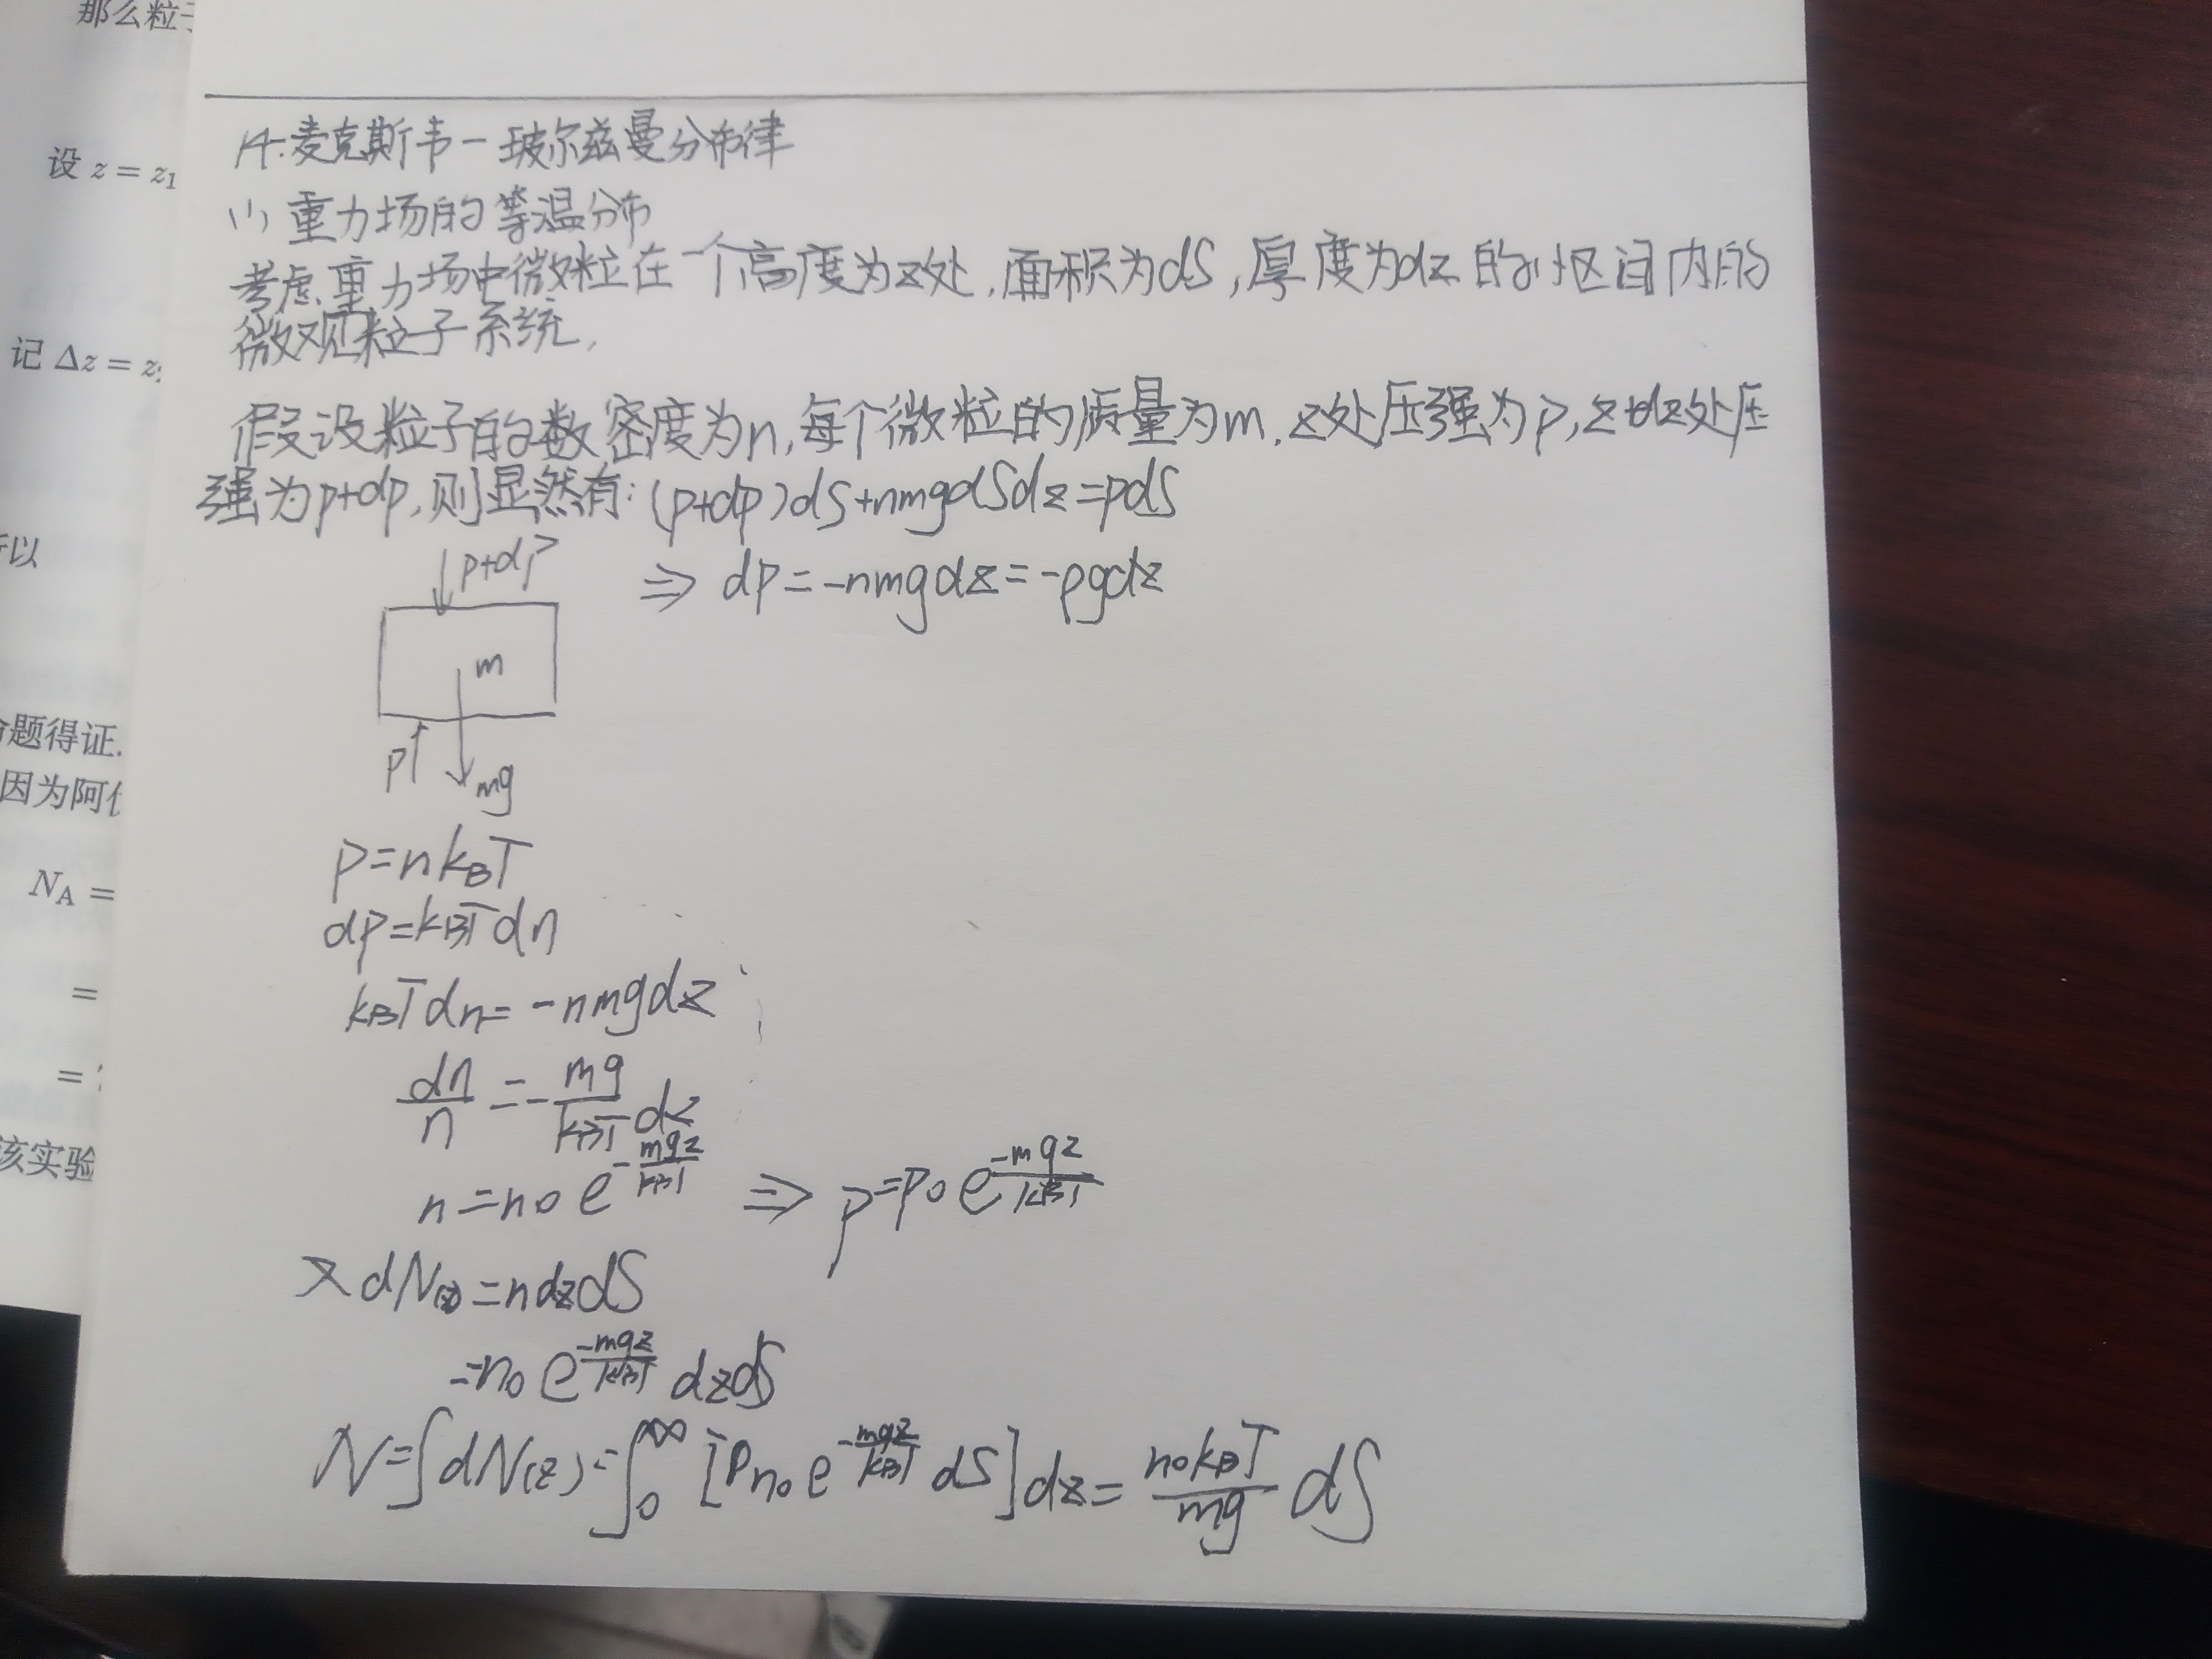 那么粒子
设 z = z₁
记 Δz = z₂
所以
命题得证.
因为阿伏
N_A =
=
=
该实验
14.麦克斯韦-玻尔兹曼分布律
(1) 重力场的等温分布
考虑重力场中微粒在一个高度为z处,面积为dS,厚度为dz的小区间内的
微观粒子系统,
假设粒子的数密度为n,每个微粒的质量为m,z处压强为p,z+dz处压
强为p+dp,则显然有:(p+dp)dS+nmgdSdz=pdS
⇒ dp=-nmgdz=-ρgdz
p+dp
m
p
mg
p=nk_BT
dp=k_BTdn
k_BTdn=-nmgdz
dn/n=-mg/(k_BT)dz
n=n₀e^(-mgz/(k_BT)) ⇒ p=p₀e^(-mgz/(k_BT))
又dN(z)=ndzdS
=n₀e^(-mgz/(k_BT))dzdS
N=∫dN(z)=∫₀^∞[n₀e^(-mgz/(k_BT))dS]dz=(n₀k_BT)/(mg) dS